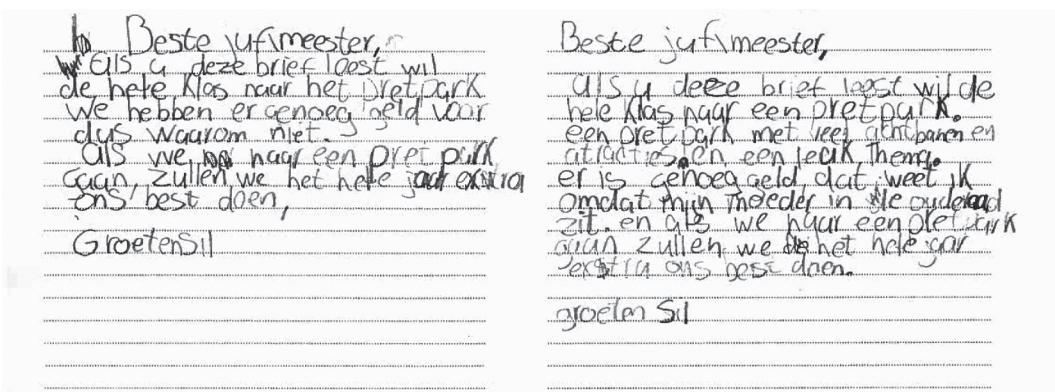 Beste juf\meester,
als u deze brief leest wil
de hele klas naar het pretpark
we hebben er genoeg geld voor
dus waarom niet.
als we naar een pret park
gaan, zullen we het hele jaar extra
ons best doen,
Groeten Sil
Beste juf\meester,
als u deze brief leest wil de
hele klas naar een pretpark.
een pret park met veel achtbanen en
atracties. en een leuk thema.
er is genoeg geld dat weet ik
omdat mijn moeder in de ouderaad
zit. en als we naar een pret park
gaan zullen we het hele jaar
extra ons best doen.
groeten Sil